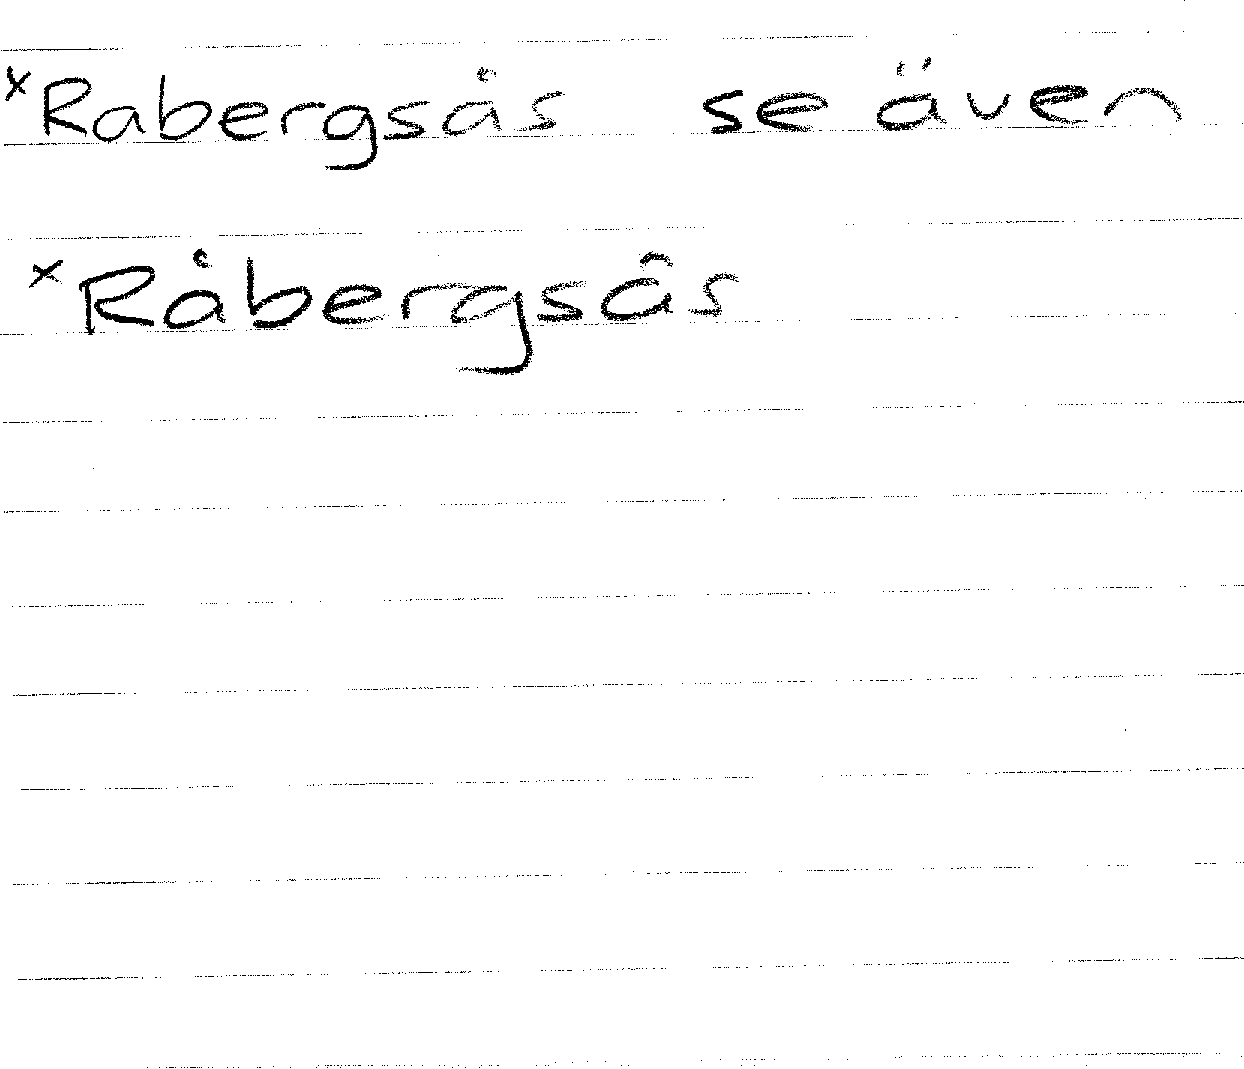 ×Rabergsås se även
×Råbergsås